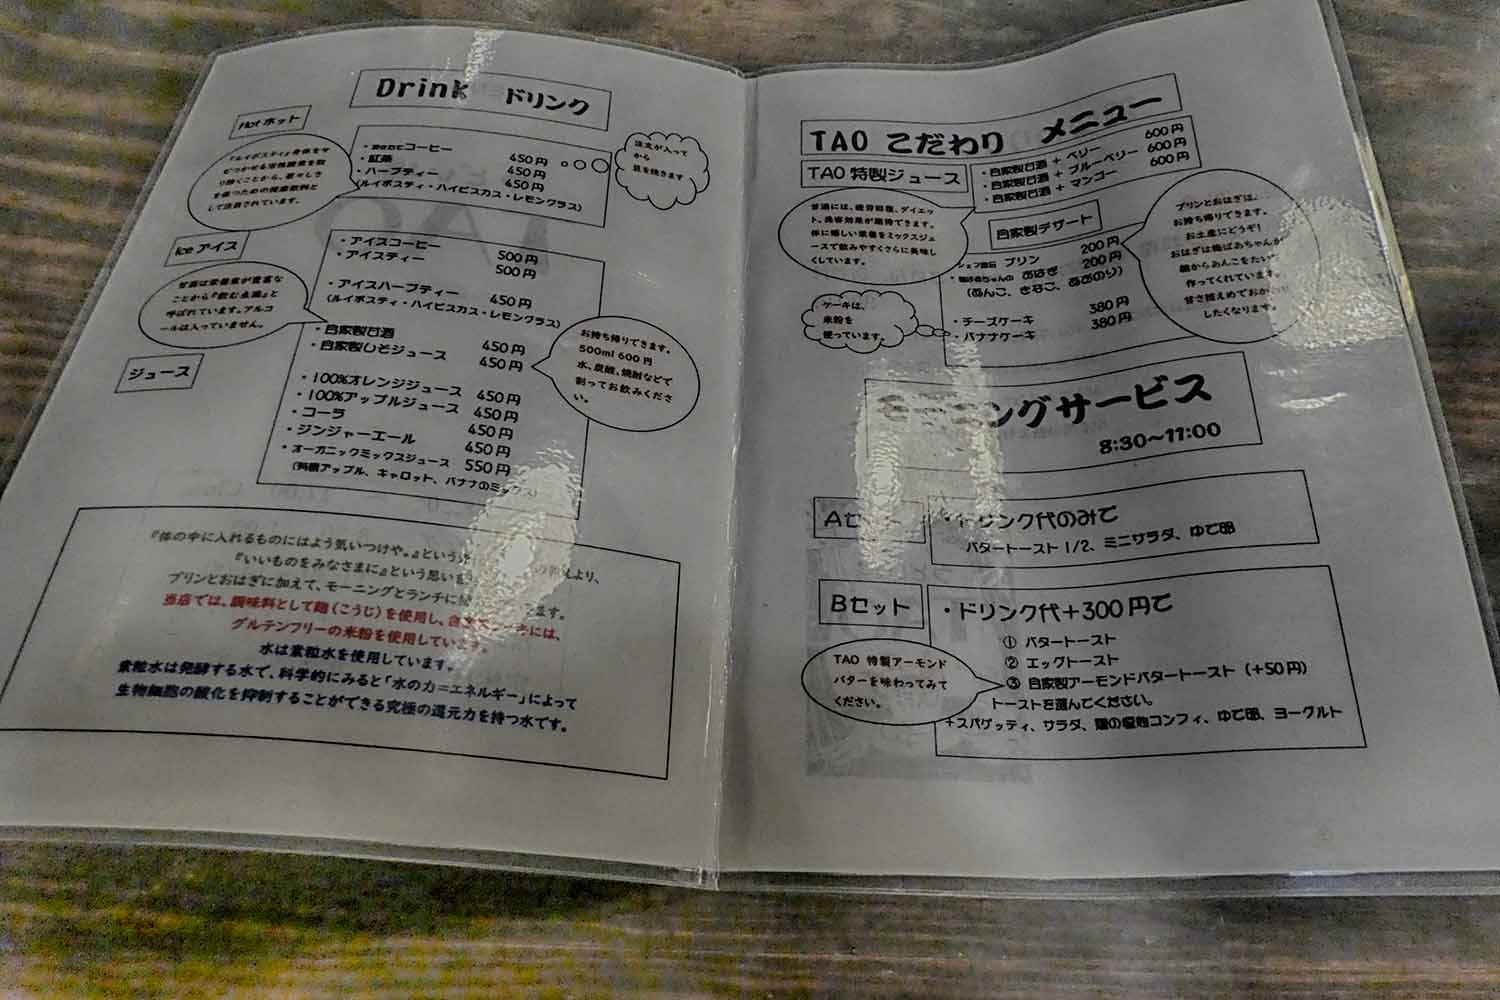 Drink ドリンク
Hot ホット
コーヒー 450円
・紅茶 450円
・ハーブティー 450円
(ルイボスティ・ハイビスカス・レモングラス)
注文が入って
から
豆を挽きます
して注目されています。
Ice アイス
・アイスコーヒー 500円
・アイスティー 500円
・アイスハーブティー 450円
(ルイボスティ・ハイビスカス・レモングラス)
甘酒は栄養素が豊富な
ことから『飲む点滴』と
呼ばれています。アルコ
ールは入っていません。
・自家製甘酒 450円
・自家製しそジュース 450円
お持ち帰りできます。
500ml 600円
水、炭酸、焼酎などで
割ってお飲みくださ
い。
ジュース
・100%オレンジジュース 450円
・100%アップルジュース 450円
・コーラ 450円
・ジンジャーエール 450円
・オーガニックミックスジュース 550円
アップル、キャロット、バナナのミックス)
『体の中に入れるものにはよう気いつけや。』という
『いいものをみなさまに』という思いを
プリンとおはぎに加えて、モーニングとランチに
当店では、調味料として麹(こうじ)を使用し、
グルテンフリーの米粉を使用しています。
水は素粒水を使用しています。
素粒水は発酵する水で、科学的にみると「水の力=エネルギー」によって
生物細胞の酸化を抑制することができる究極の還元力を持つ水です。
TAO こだわり メニュー
TAO 特製ジュース
・自家製甘酒 + ベリー 600円
・自家製甘酒 + ブルーベリー 600円
・自家製甘酒 + マンゴー 600円
甘酒には、疲労回復、ダイエッ
ト、美容効果が期待できます。
体に嬉しい栄養をミックスジュ
ースで飲みやすくさらに美味し
くしています。
自家製デザート
プリン 200円
おはぎ 200円
(あんこ、きなこ、あおのり)
・チーズケーキ 380円
・バナナケーキ 380円
ケーキは、
米粉を
使っています。
プリンとおはぎは、
お持ち帰りできます。
お土産にどうぞ!
おはぎは梅ばあちゃんが
朝からあんこをたいて
作ってくれています。
甘さ控えめでおかわり
したくなります。
モーニングサービス
8:30~11:00
Aセット
・ドリンク代のみで
バタートースト 1/2、ミニサラダ、ゆで卵
Bセット
・ドリンク代+300円で
① バタートースト
② エッグトースト
③ 自家製アーモンドバタートースト (+50円)
トーストを選んでください。
+スパゲッティ、サラダ、鶏の塩麹コンフィ、ゆで卵、ヨーグルト
TAO 特製アーモンド
バターを味わってみて
ください。